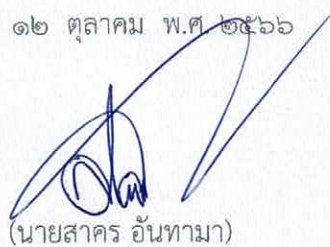 ๑๒ ตุลาคม พ.ศ. ๒๕๖๖
(นายสาคร อันทามา)